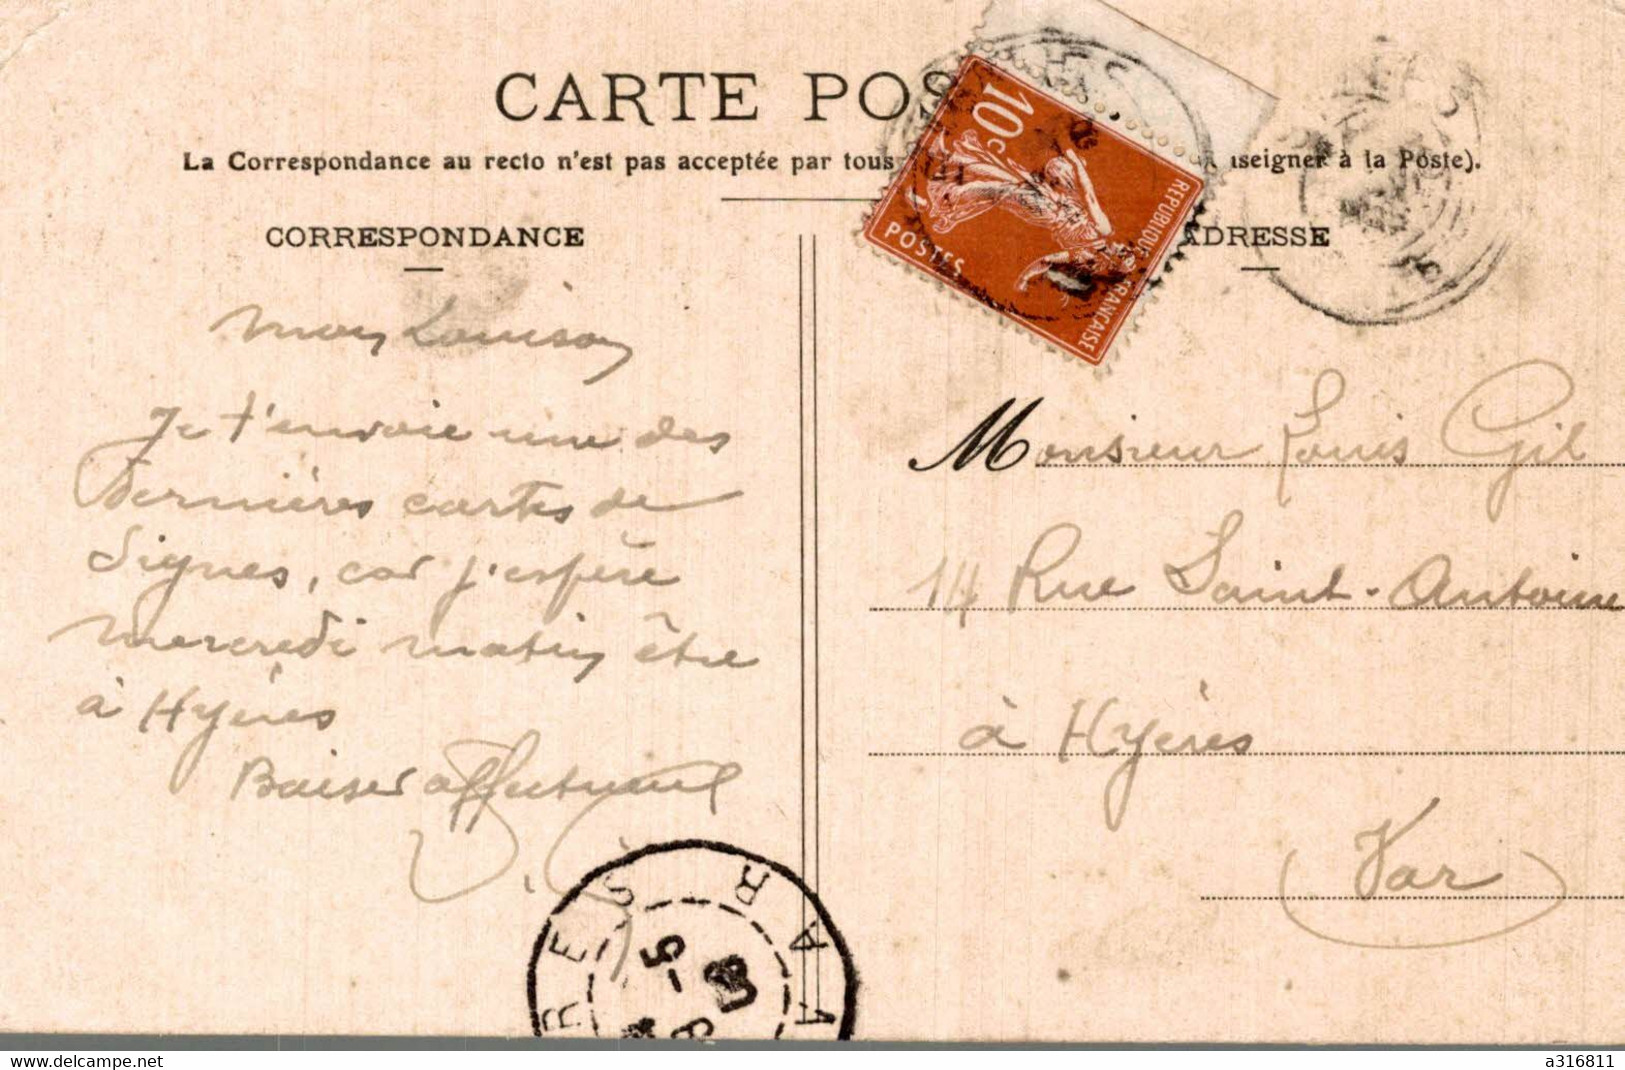 CARTE POS
La Correspondance au recto n'est pas acceptée par tous
nseigner à la Poste).
CORRESPONDANCE
ADRESSE
10c
POSTES
REPUBLIQUE FRANÇAISE
mon Louison
Je t'envoie une des
dernières cartes de
Signes, car j'espère
mercredi matin être
à Hyères
Baiser affectueux
Monsieur Louis Gil
14 Rue Saint-Antoine
à Hyères
(Var)
RES
VAR
5
https://www.delcampe.net
a316811